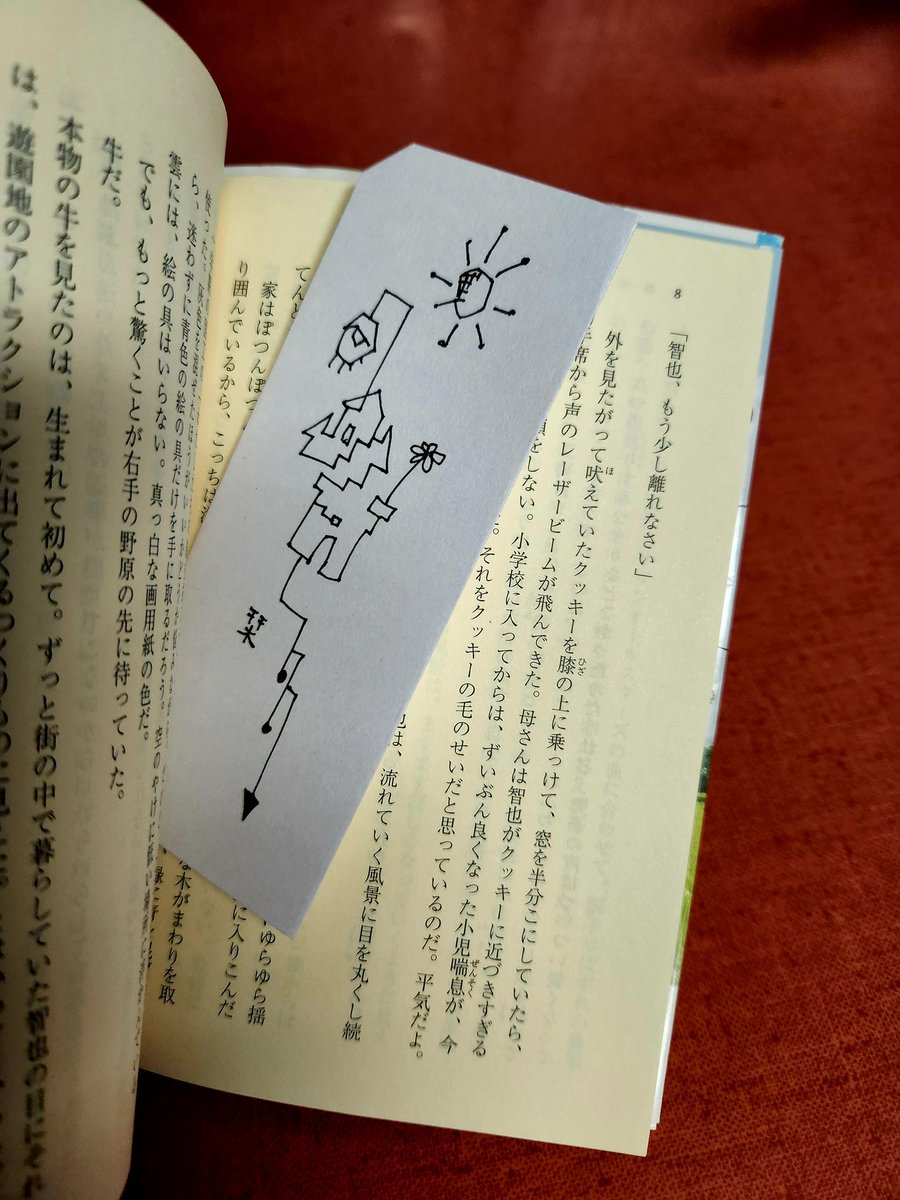 8
「智也、もう少し離れなさい」
外を見たがって吠えていたクッキーを膝の上に乗っけて、窓を半分こにしていたら、
席から声のレーザービームが飛んできた。母さんは智也がクッキーに近づきすぎる
をしない。小学校に入ってからは、ずいぶん良くなった小児喘息が、今
。それをクッキーの毛のせいだと思っているのだ。平気だよ。
は、流れていく風景に目を丸くし続
てんと
ゆらゆら揺
家はぽつんぽつ
に入りこんだ
り囲んでいるから、こっちは
な木がまわりを取
栞
使った。
ら、迷わずに青色の絵の具だけを手に取るだろう。空のやけに
雲には、絵の具はいらない。真っ白な画用紙の色だ。
でも、もっと驚くことが右手の野原の先に待っていた。
牛だ。
本物の牛を見たのは、生まれて初めて。ずっと街の中で暮らしていた智也の目にそれ
は、遊園地のアトラクションに出てくるつくりものに見えた。